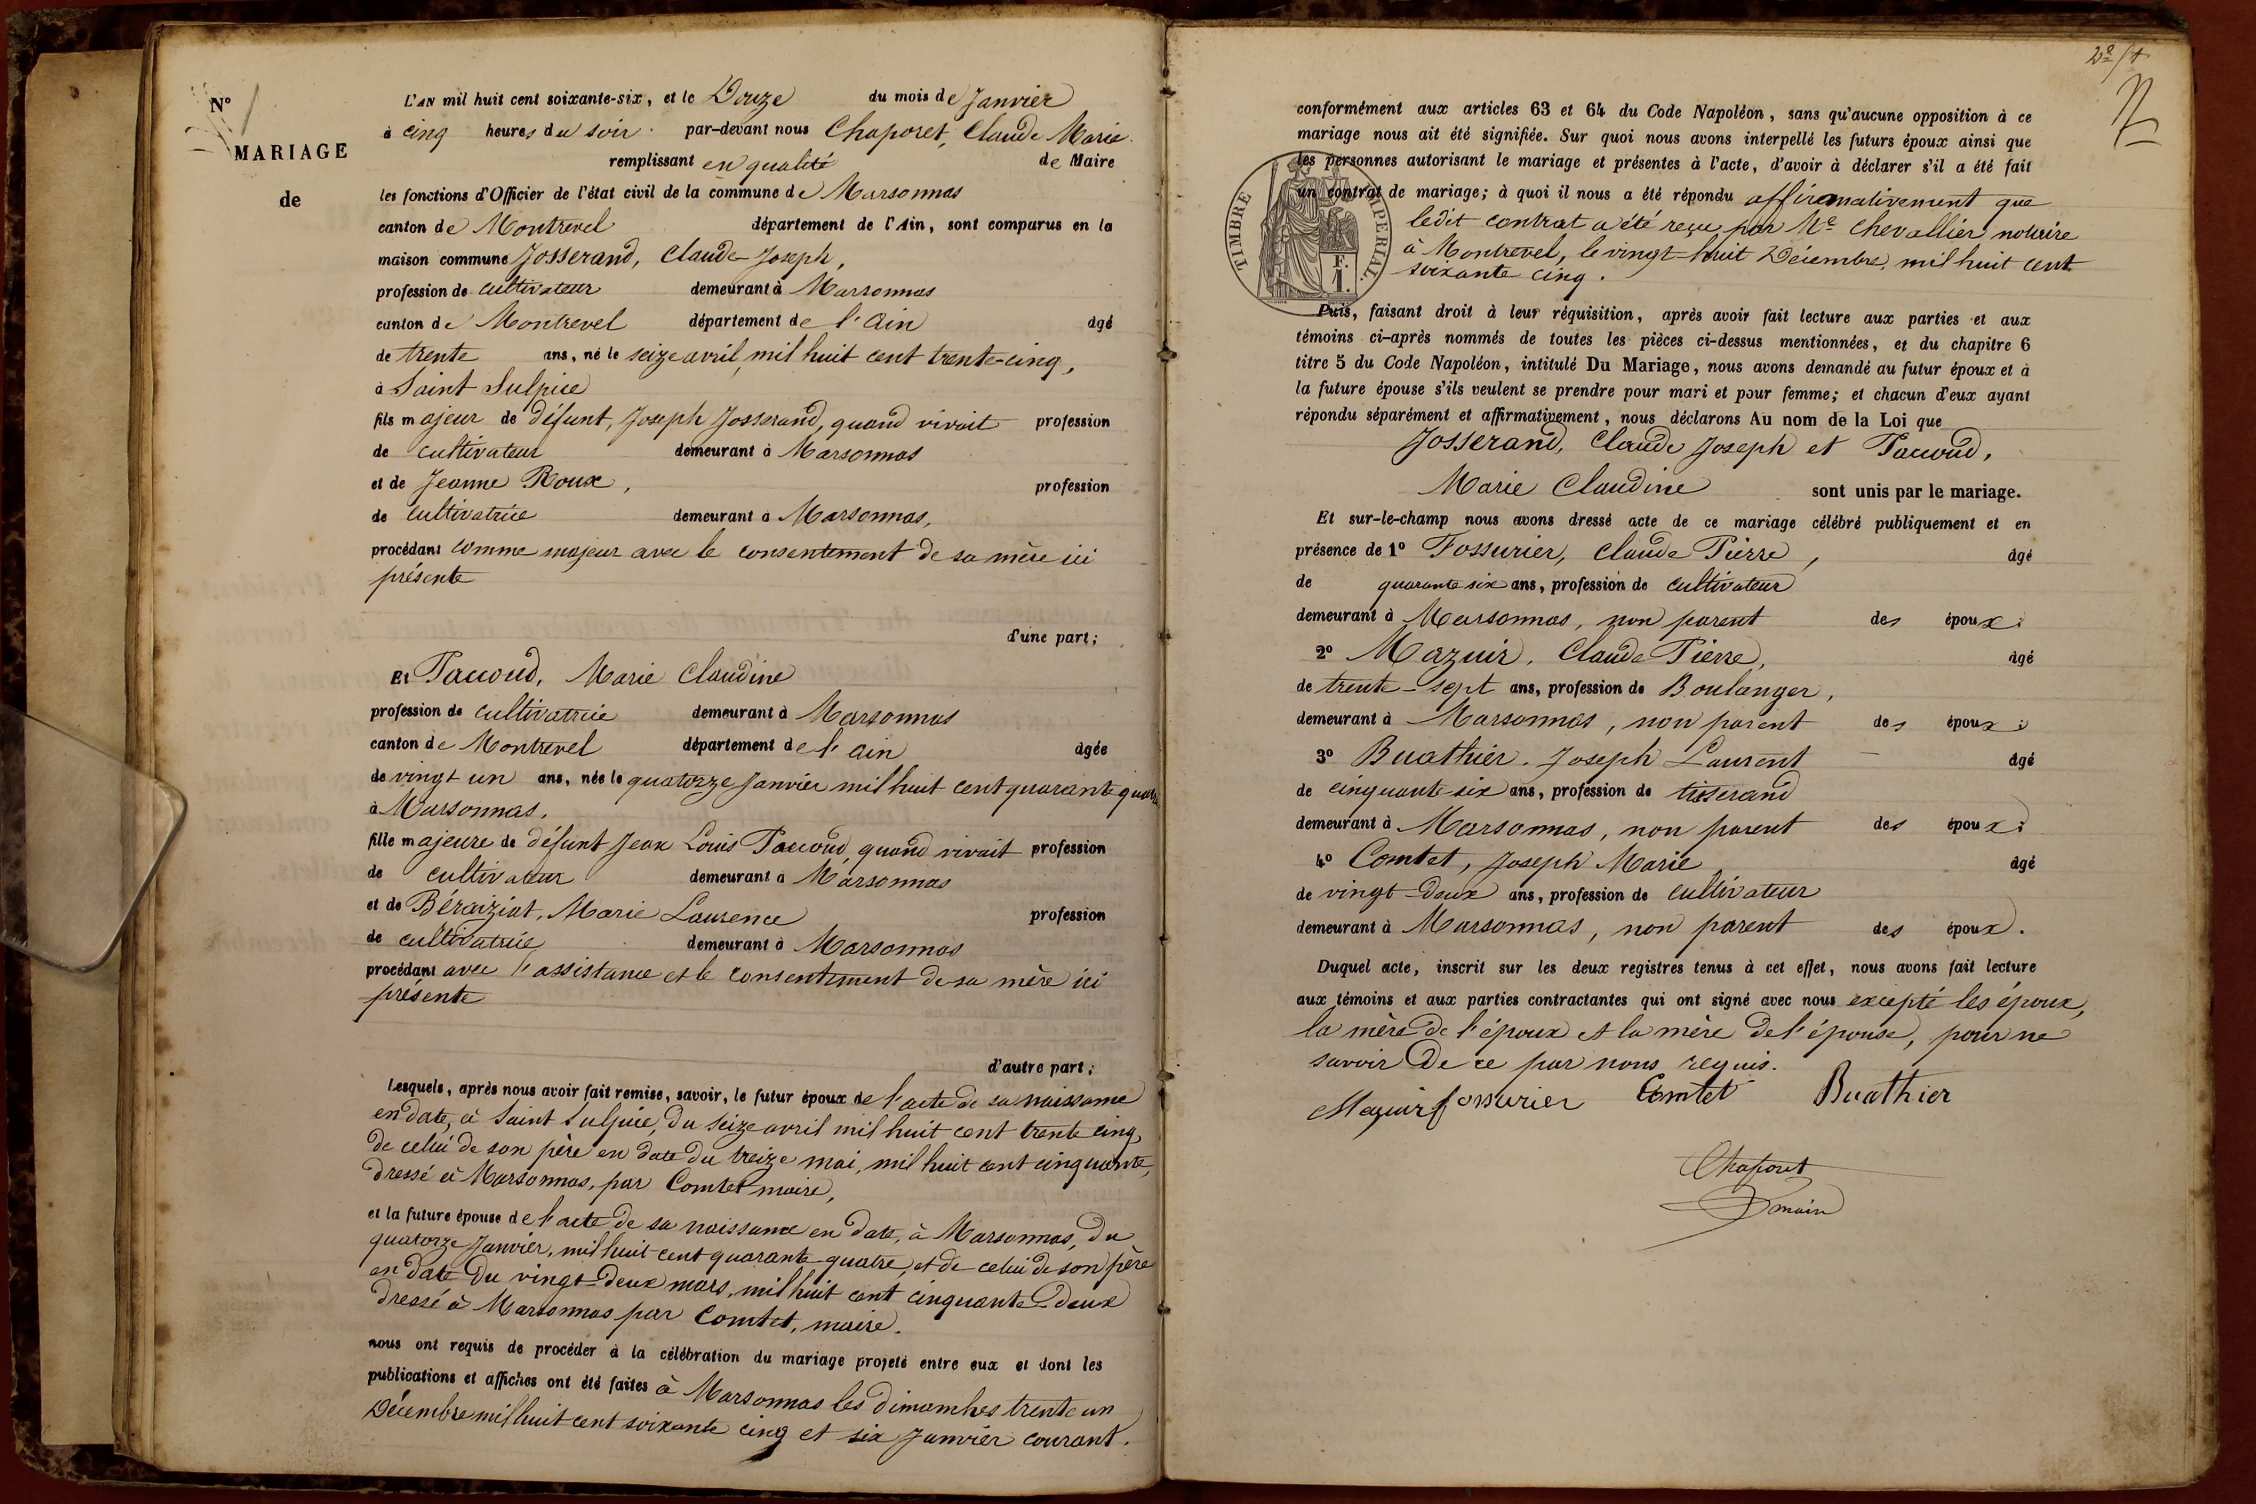 N° 1
MARIAGE
de
L'AN mil huit cent soixante-six, et le Douze du mois de Janvier
à cinq heures du soir par-devant nous Chaporet, Claude Marie
remplissant en qualité de Maire
les fonctions d'Officier de l'état civil de la commune de Marsonnas
canton de Montrevel département de l'Ain, sont comparus en la
maison commune Josserand, Claude Joseph,
profession de cultivateur demeurant à Marsonnas
canton de Montrevel département de l'ain âgé
de trente ans, né le seize avril, mil huit cent trente-cinq,
à Saint Sulpice
fils majeur de défunt, Joseph Josserand, quand vivait profession
de cultivateur demeurant à Marsonnas
et de Jeanne Roux, profession
de cultivatrice demeurant à Marsonnas,
procédant comme majeur avec le consentement de sa mère ici
présente
d'une part;
Et Paccoud, Marie Claudine
profession de cultivatrice demeurant à Marsonnas
canton de Montrevel département de l'ain âgée
de vingt un ans, née le quatorze Janvier mil huit cent quarante quatre
à Marsonnas.
fille majeure de défunt Jean Louis Paccoud, quand vivait profession
de cultivateur demeurant à Marsonnas
et de Béraiziat, Marie Laurence profession
de cultivatrice demeurant à Marsonnas
procédant avec l'assistance et le consentement de sa mère ici
présente
d'autre part;
Lesquels, après nous avoir fait remise, savoir, le futur époux de l'acte de sa naissance
en date, à Saint Sulpice, du seize avril mil huit cent trente cinq,
de celui de son père en date du treize mai, mil huit cent cinquante,
dressé à Marsonnas, par Comtet maire,
et la future épouse de l'acte de sa naissance en date, à Marsonnas, du
quatorze Janvier, mil huit cent quarante-quatre, et de celui de son père
en date du vingt-deux mars, mil huit cent cinquante-deux
dressé à Marsonnas par Comtet, maire.
nous ont requis de procéder à la célébration du mariage projeté entre eux et dont les
publications et affiches ont été faites à Marsonnas les dimanches trente un
Décembre mil huit cent soixante cinq et six Janvier courant.
conformément aux articles 63 et 64 du Code Napoléon, sans qu'aucune opposition à ce
mariage nous ait été signifiée. Sur quoi nous avons interpellé les futurs époux ainsi que
les personnes autorisant le mariage et présentes à l'acte, d'avoir à déclarer s'il a été fait
un contrat de mariage; à quoi il nous a été répondu affirmativement que
ledit contrat a été reçu par Me Chevallier notaire
à Montrevel, le vingt-huit Décembre, mil huit cent
soixante cinq.
TIMBRE IMPERIAL
F.
1.
Puis, faisant droit à leur réquisition, après avoir fait lecture aux parties et aux
témoins ci-après nommés de toutes les pièces ci-dessus mentionnées, et du chapitre 6
titre 5 du Code Napoléon, intitulé Du Mariage, nous avons demandé au futur époux et à
la future épouse s'ils veulent se prendre pour mari et pour femme; et chacun d'eux ayant
répondu séparément et affirmativement, nous déclarons Au nom de la Loi que
Josserand, Claude Joseph et Paccoud,
Marie Claudine sont unis par le mariage.
Et sur-le-champ nous avons dressé acte de ce mariage célébré publiquement et en
présence de 1° Fossurier, Claude Pierre, âgé
de quarante six ans, profession de cultivateur
demeurant à Marsonnas, non parent des époux.
2° Mazuir, Claude Pierre, âgé
de trente-sept ans, profession de Boulanger,
demeurant à Marsonnas, non parent des époux.
3° Buathier. Joseph Laurent âgé
de cinquante six ans, profession de tisserand
demeurant à Marsonnas, non parent des époux.
4° Comtet, Joseph Marie âgé
de vingt-deux ans, profession de cultivateur
demeurant à Marsonnas, non parent des époux.
Duquel acte, inscrit sur les deux registres tenus à cet effet, nous avons fait lecture
aux témoins et aux parties contractantes qui ont signé avec nous excepté les époux,
la mère de l'époux et la mère de l'épouse, pour ne
savoir de ce par nous requis.
Mazuir fossurier Comtet Buathier
Chaporet
maire